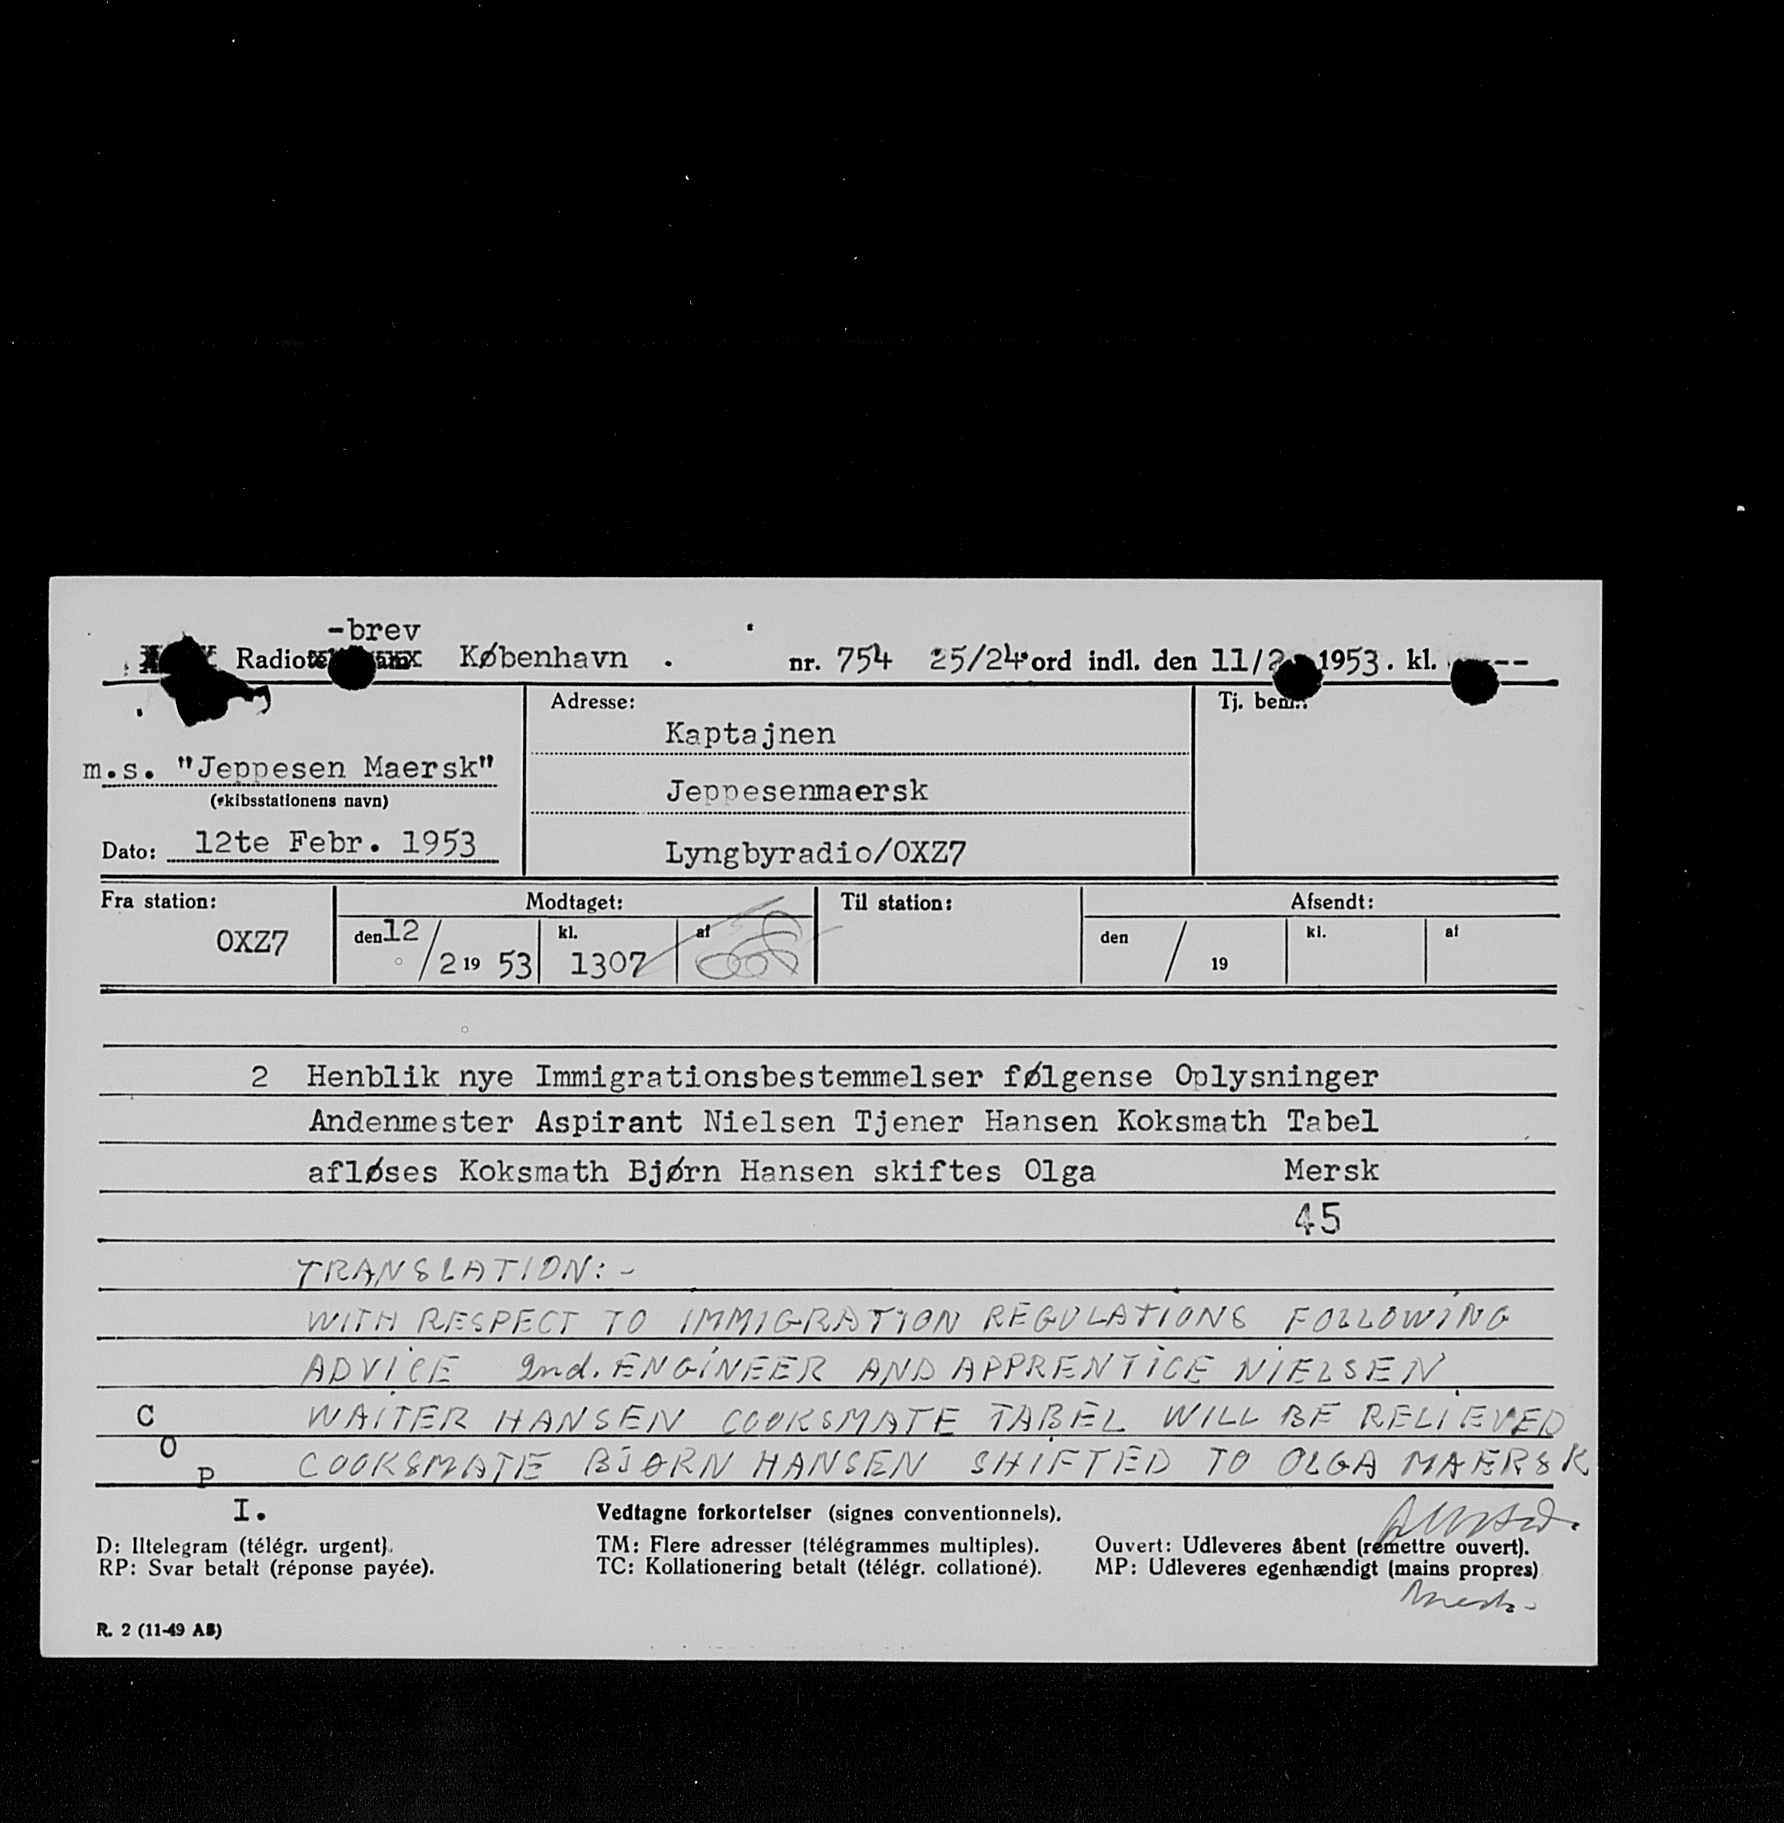 -brev
Radiotelegram København . nr. 754 25/24 ord indl. den 11/2 1953. kl. ---
Adresse:
Tj. bem.:
Kaptajnen
m.s. "Jeppesen Maersk"
(skibsstationens navn)
Jeppesenmaersk
Dato: 12te Febr. 1953
Lyngbyradio/OXZ7
Fra station: Modtaget: Til station: Afsendt:
OXZ7 den 12/2 19 53 kl. 1307 af den / 19 kl. af
2 Henblik nye Immigrationsbestemmelser følgense Oplysninger
Andenmester Aspirant Nielsen Tjener Hansen Koksmath Tabel
afløses Koksmath Bjørn Hansen skiftes Olga Mersk
45
TRANSLATION:-
WITH RESPECT TO IMMIGRATION REGULATIONS FOLLOWING
ADVICE 2nd. ENGINEER AND APPRENTICE NIELSEN
WAITER HANSEN COOKSMATE TABEL WILL BE RELIEVED
COOKSMATE BJØRN HANSEN SHIFTED TO OLGA MAERSK
C
O
P
I.
Vedtagne forkortelser (signes conventionnels).
D: Iltelegram (télégr. urgent). TM: Flere adresser (télégrammes multiples). Ouvert: Udleveres åbent (remettre ouvert).
RP: Svar betalt (réponse payée). TC: Kollationering betalt (télégr. collationé). MP: Udleveres egenhændigt (mains propres)
R. 2 (11-49 A5)